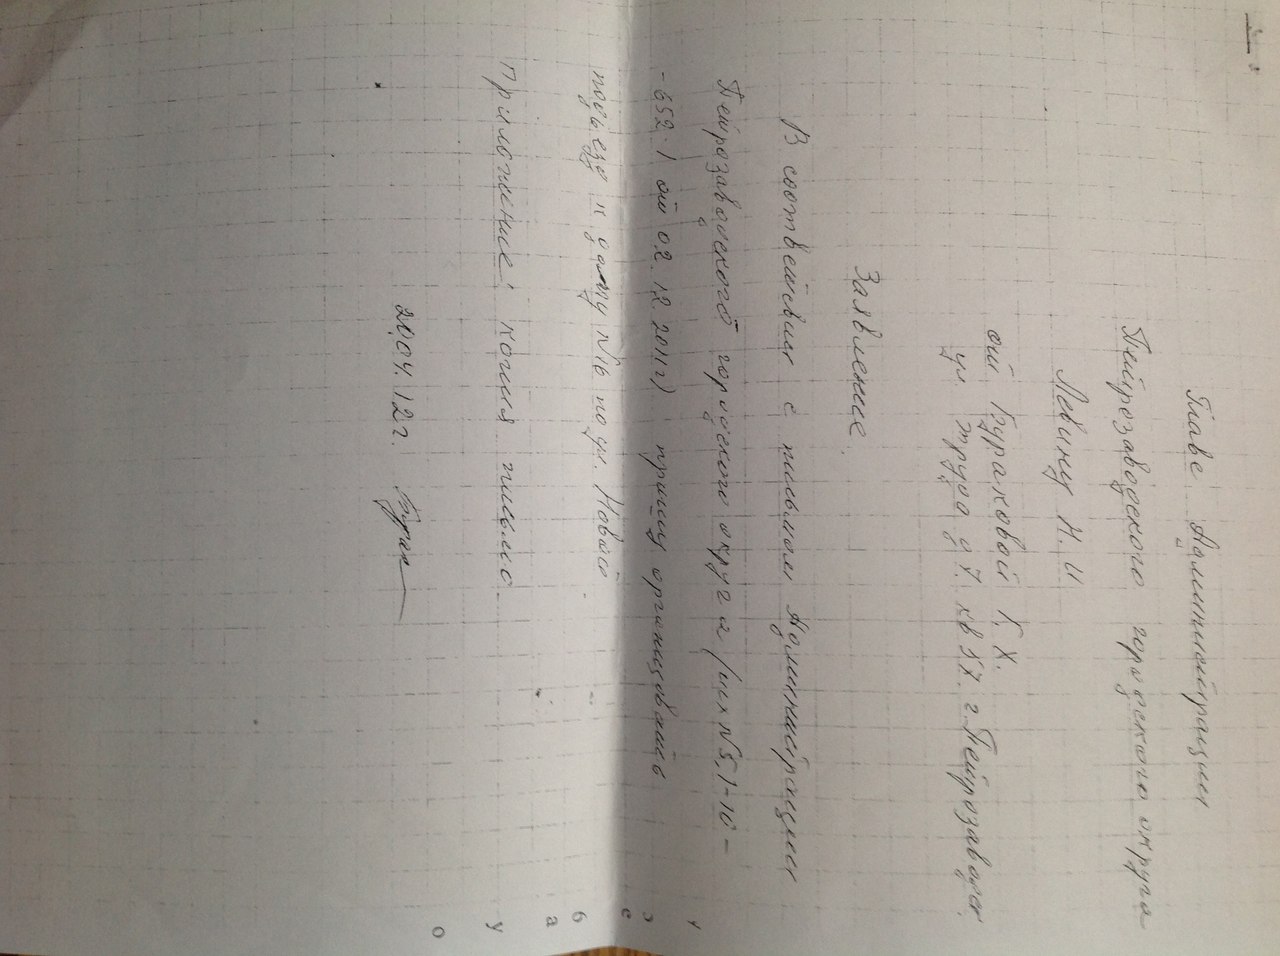 Главе Администрации
Петрозаводского городского округа
Левину Н. И
от Бураковой Г. Х.
ул Труда д 7. кв 57. г Петрозаводск
Заявление.
В соответствии с письмом Администрации
Петрозаводского городского округа (исх № 5,1-10-
-652.1 от 02.12.2011г) прошу организовать
подъезд к дому №16 по ул. Новой
Приложение: копия письма
20.04.12 г.
у
э
е
б
а
у
о